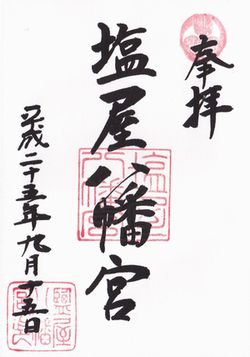 奉拝
塩屋八幡宮
平成二十五年九月十五日